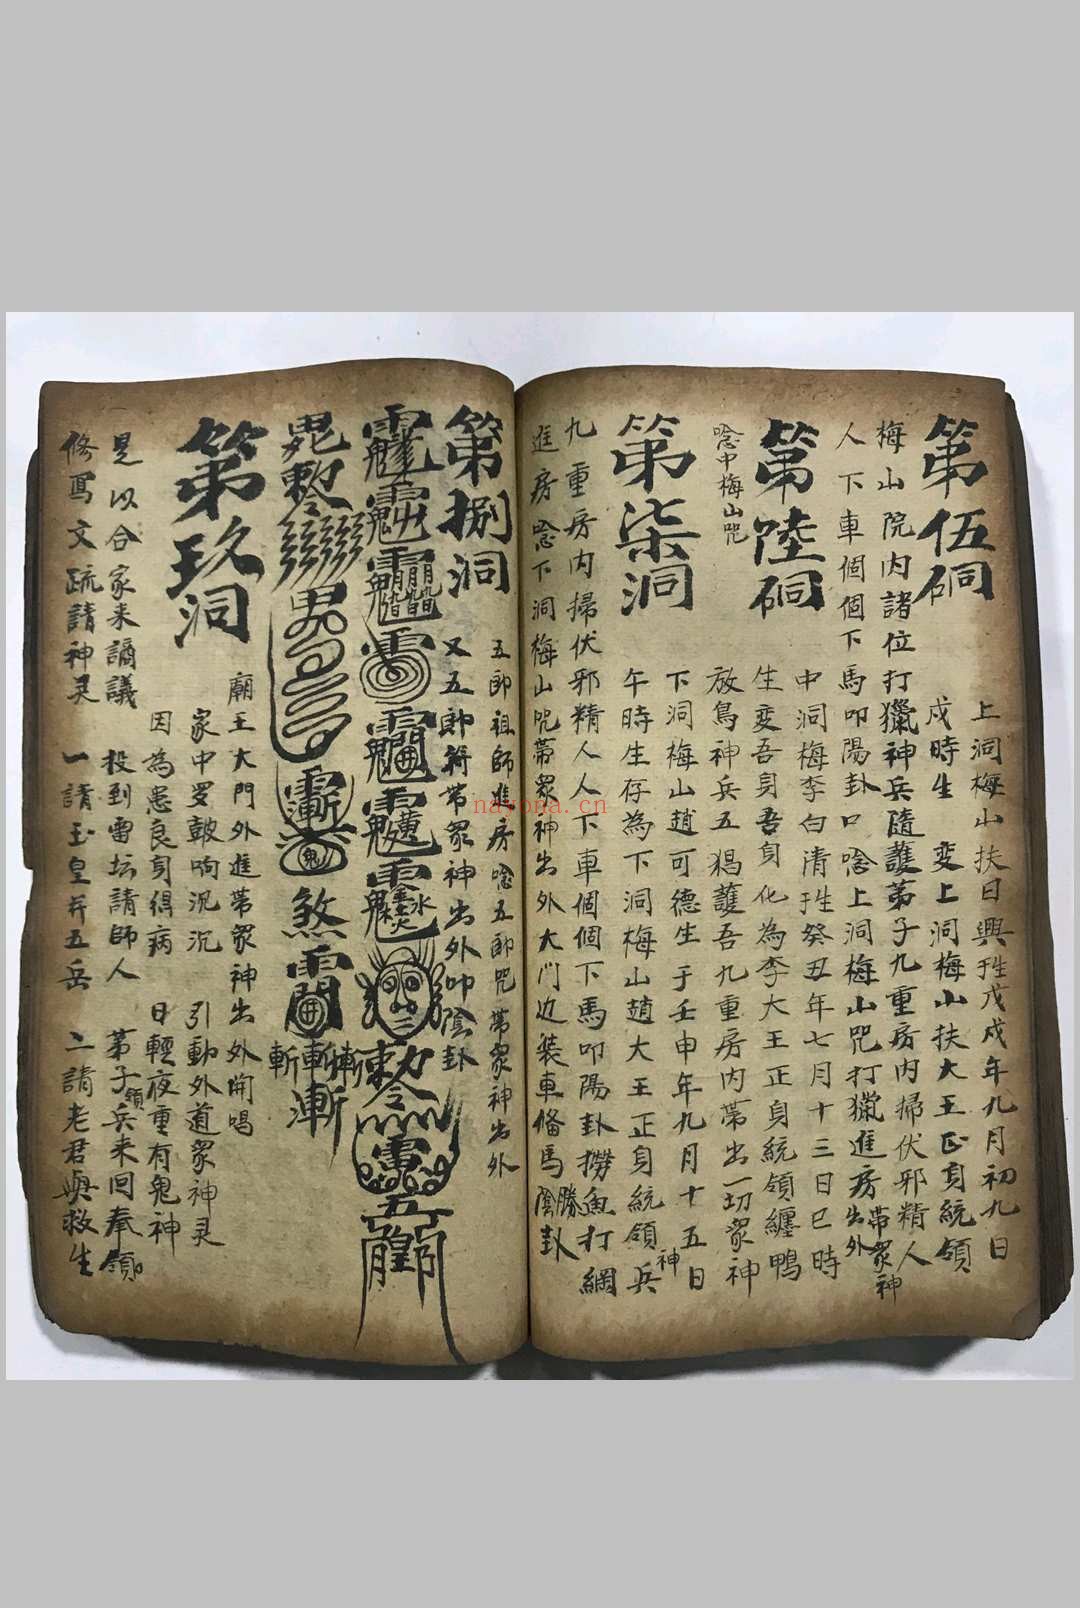 第伍硐
上洞梅山扶日興姓戊戌年九月初九日
戌時生 变上洞梅山扶大王正身統領
梅山院内諸位打獵神兵隨護弟子九重房内掃伏邪精人
人下車個個下馬叩陽卦口唸上洞梅山咒打獵進房出外
帶眾神
第陸硐
中洞梅李白清姓癸丑年七月十三日巳時
生变吾身吾身化為李大王正身統領纏鴨
放鳥神兵五猖護吾九重房内帶出一切眾神
唸中梅山咒
第柒洞
下洞梅山趙可德生于壬申年九月十五日
午時生存為下洞梅山趙大王正身統領兵
神
九重房内掃伏邪精人人下車個個下馬叩陽卦撈魚打網
進房唸下洞梅山咒帶眾神出外大门边装車俻馬陰卦
勝
第捌洞
五郎祖師進房唸五郎咒帶眾神出外
又五郎符帶眾神出外叩陰卦
煞
斬
斬
第玖洞
廟王大門外進帶眾神出外開唱
家中罗皷响沉沉 引動外道眾神灵
因為患良身得病 日輕夜重有鬼神
是以合家来謫議 投到雷坛請師人 第子領兵来回奉領
修寫文疏請神灵 一請玉皇并五岳 二請老君與救生